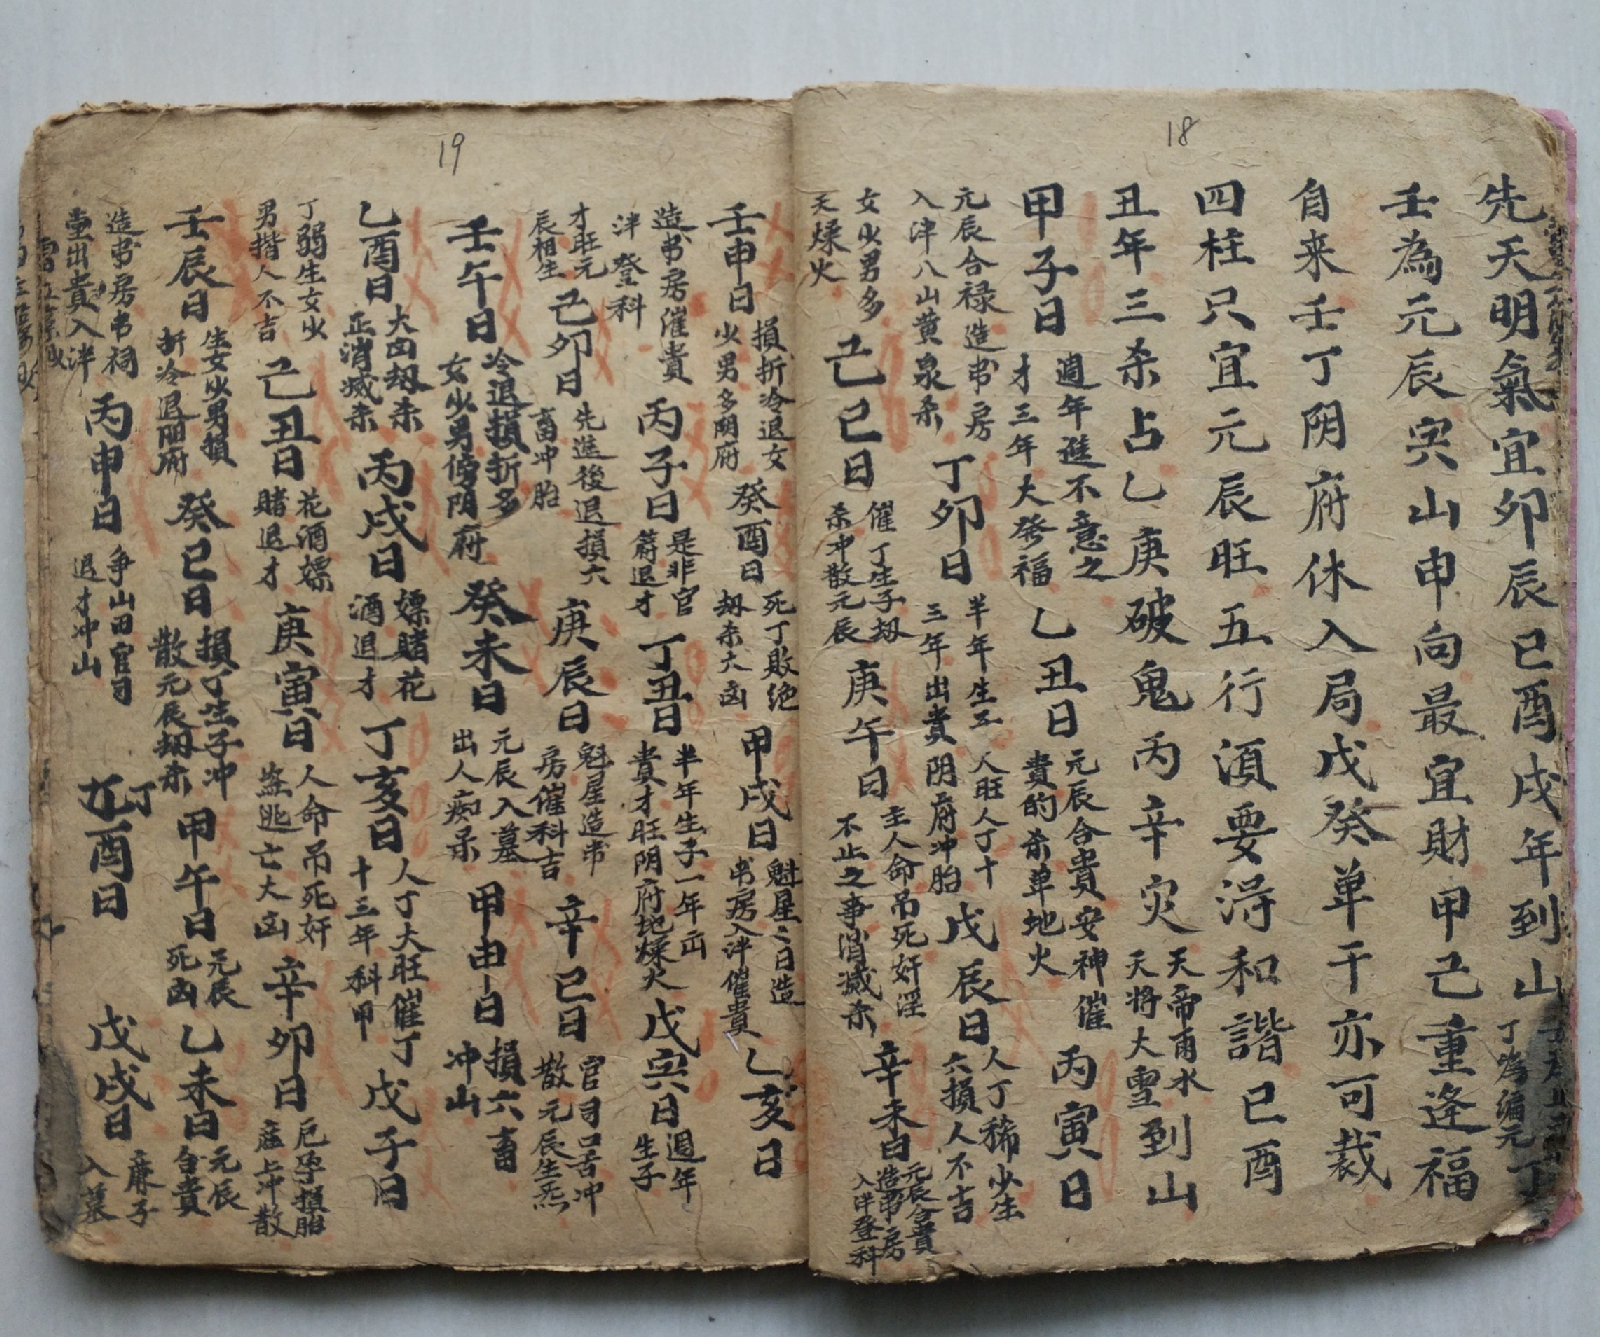 18
先天明氣宜卯辰巳酉戌年到山
丁為編元
壬為元辰寅山申向最宜財甲己重逢福
自来壬丁阴府休入局戊癸单干亦可裁
四柱只宜元辰旺五行須要淂和諧巳酉
丑年三杀占乙庚破鬼丙辛灾
天帝雨水
天将大雪
到山
甲子日
週年進不意之
才三年大發福
乙丑日
元辰合貴安神催
貴的杀草地火
丙寅日
元辰合禄造书房
入泮八山黄泉杀
丁卯日
半年生子人旺人丁十
三年出貴阴府冲胎
戊辰日
人丁稀少生
六損人不吉
女火男多
天燥火
己巳日
催丁生子刼
杀冲散元辰
庚午日
主人命吊死奸淫
不止之事消滅杀
辛未日
元辰合貴
造书房
入泮登科
19
壬申日
損折冷退女
火男多阴府
癸酉日
死丁敗绝
刼杀大凶
甲戌日
魁星之日造
书房入泮催貴
乙亥日
造书房催貴
泮登科
丙子日
是非官
蔚退才
丁丑日
半年生子一年凶
貴才旺阴府地燥火
戊寅日
週年
生子
才旺元
辰相生
己卯日
先進後退損六
畜冲胎
庚辰日
魁星造书
房催科吉
辛巳日
官司口舌冲
散元辰生炁
壬午日
冷退損折多
女火男傍阴府
癸未日
元辰入墓
出人痴杀
甲申日
損六畜
冲山
乙酉日
大凶刼杀
正消滅杀
丙戌日
嫖賭花
酒退才
丁亥日
人丁大旺催丁
十三年科甲
戊子日
丁弱生女火
男揩人不吉
己丑日
花酒嫖
賭退才
庚寅日
人命吊死奸
盗逃亡大凶
辛卯日
厄孕損胎
症占冲散
壬辰日
生女火男損
折冷退阴府
癸巳日
損丁生子冲
散元辰刼杀
甲午日
元辰
死凶
乙未日
元辰
合貴
造书房书祠
堂出貴入泮
丙申日
争山田官司
退才冲山
丁
酉日
戊戌日
麻子
入墓